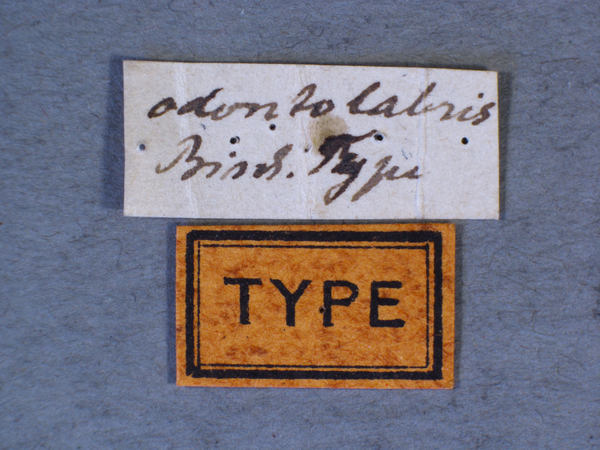 odontolabris
Bind. Type
TYPE